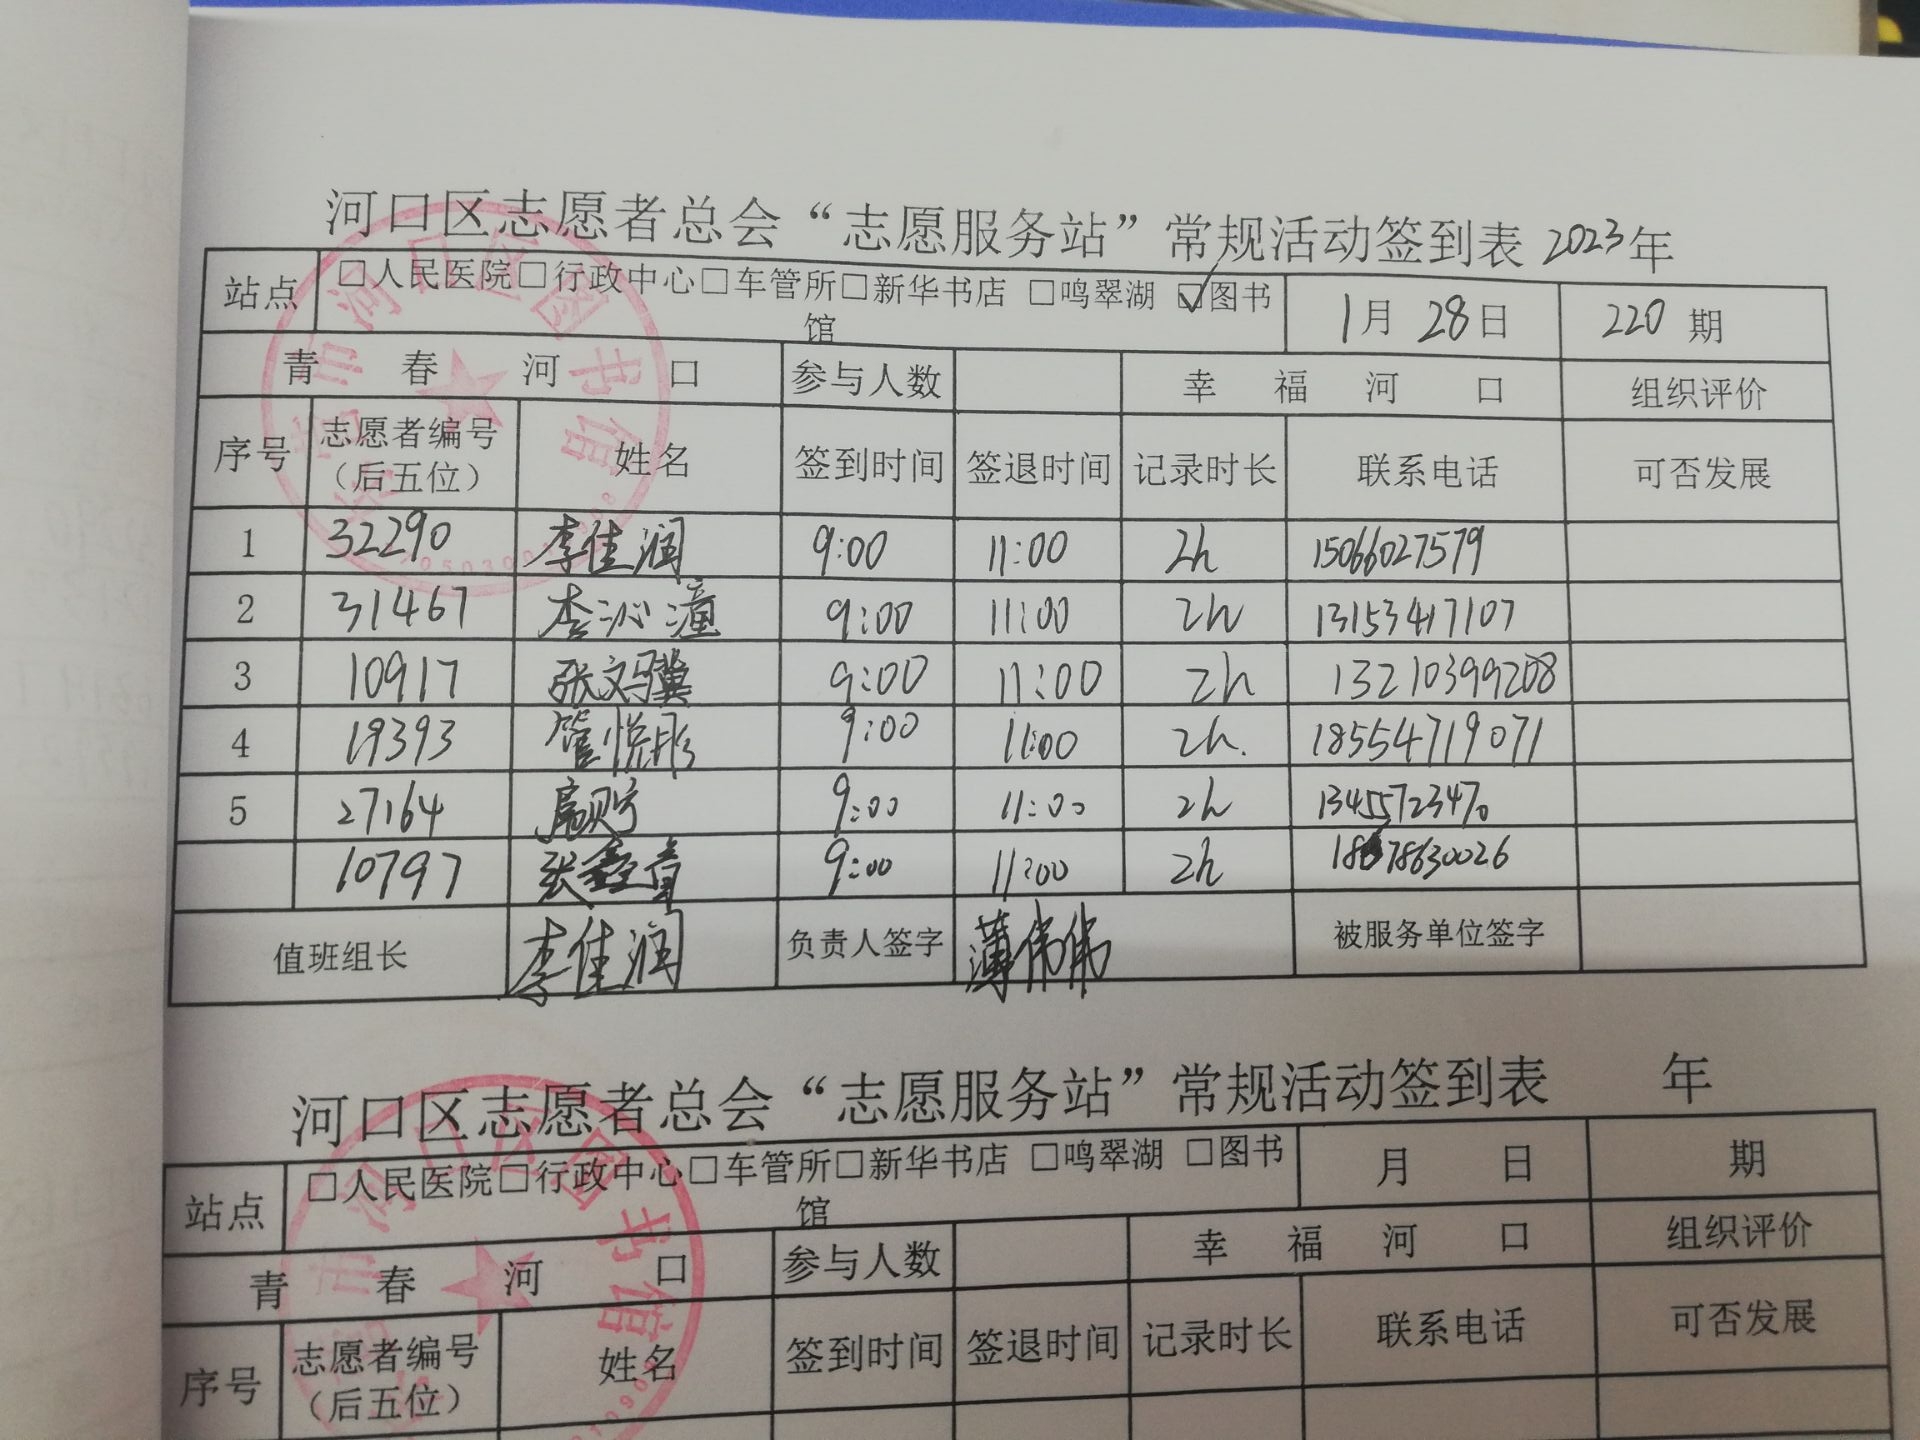 河口区志愿者总会“志愿服务站”常规活动签到表 2023年
站点 □人民医院□行政中心□车管所□新华书店 □鸣翠湖 ☑图书馆 1月 28日 220 期
青 春 河 口 参与人数 幸 福 河 口 组织评价
序号 志愿者编号（后五位） 姓名 签到时间 签退时间 记录时长 联系电话 可否发展
1 32290 李佳润 9:00 11:00 2h 15066027579
2 31467 李沁潼 9:00 11:00 2h 13153417107
3 10917 张文骥 9:00 11:00 2h 13210399208
4 19393 管悦彤 9:00 11:00 2h. 18554719071
5 27164 9:00 11:00 2h 13455723470
10797 张鑫童 9:00 11:00 2h
值班组长 李佳润 负责人签字 薄伟伟 被服务单位签字
河口区志愿者总会“志愿服务站”常规活动签到表 年
站点 □人民医院□行政中心□车管所□新华书店 □鸣翠湖 □图书馆 月 日 期
青 春 河 口 参与人数 幸 福 河 口 组织评价
序号 志愿者编号（后五位） 姓名 签到时间 签退时间 记录时长 联系电话 可否发展